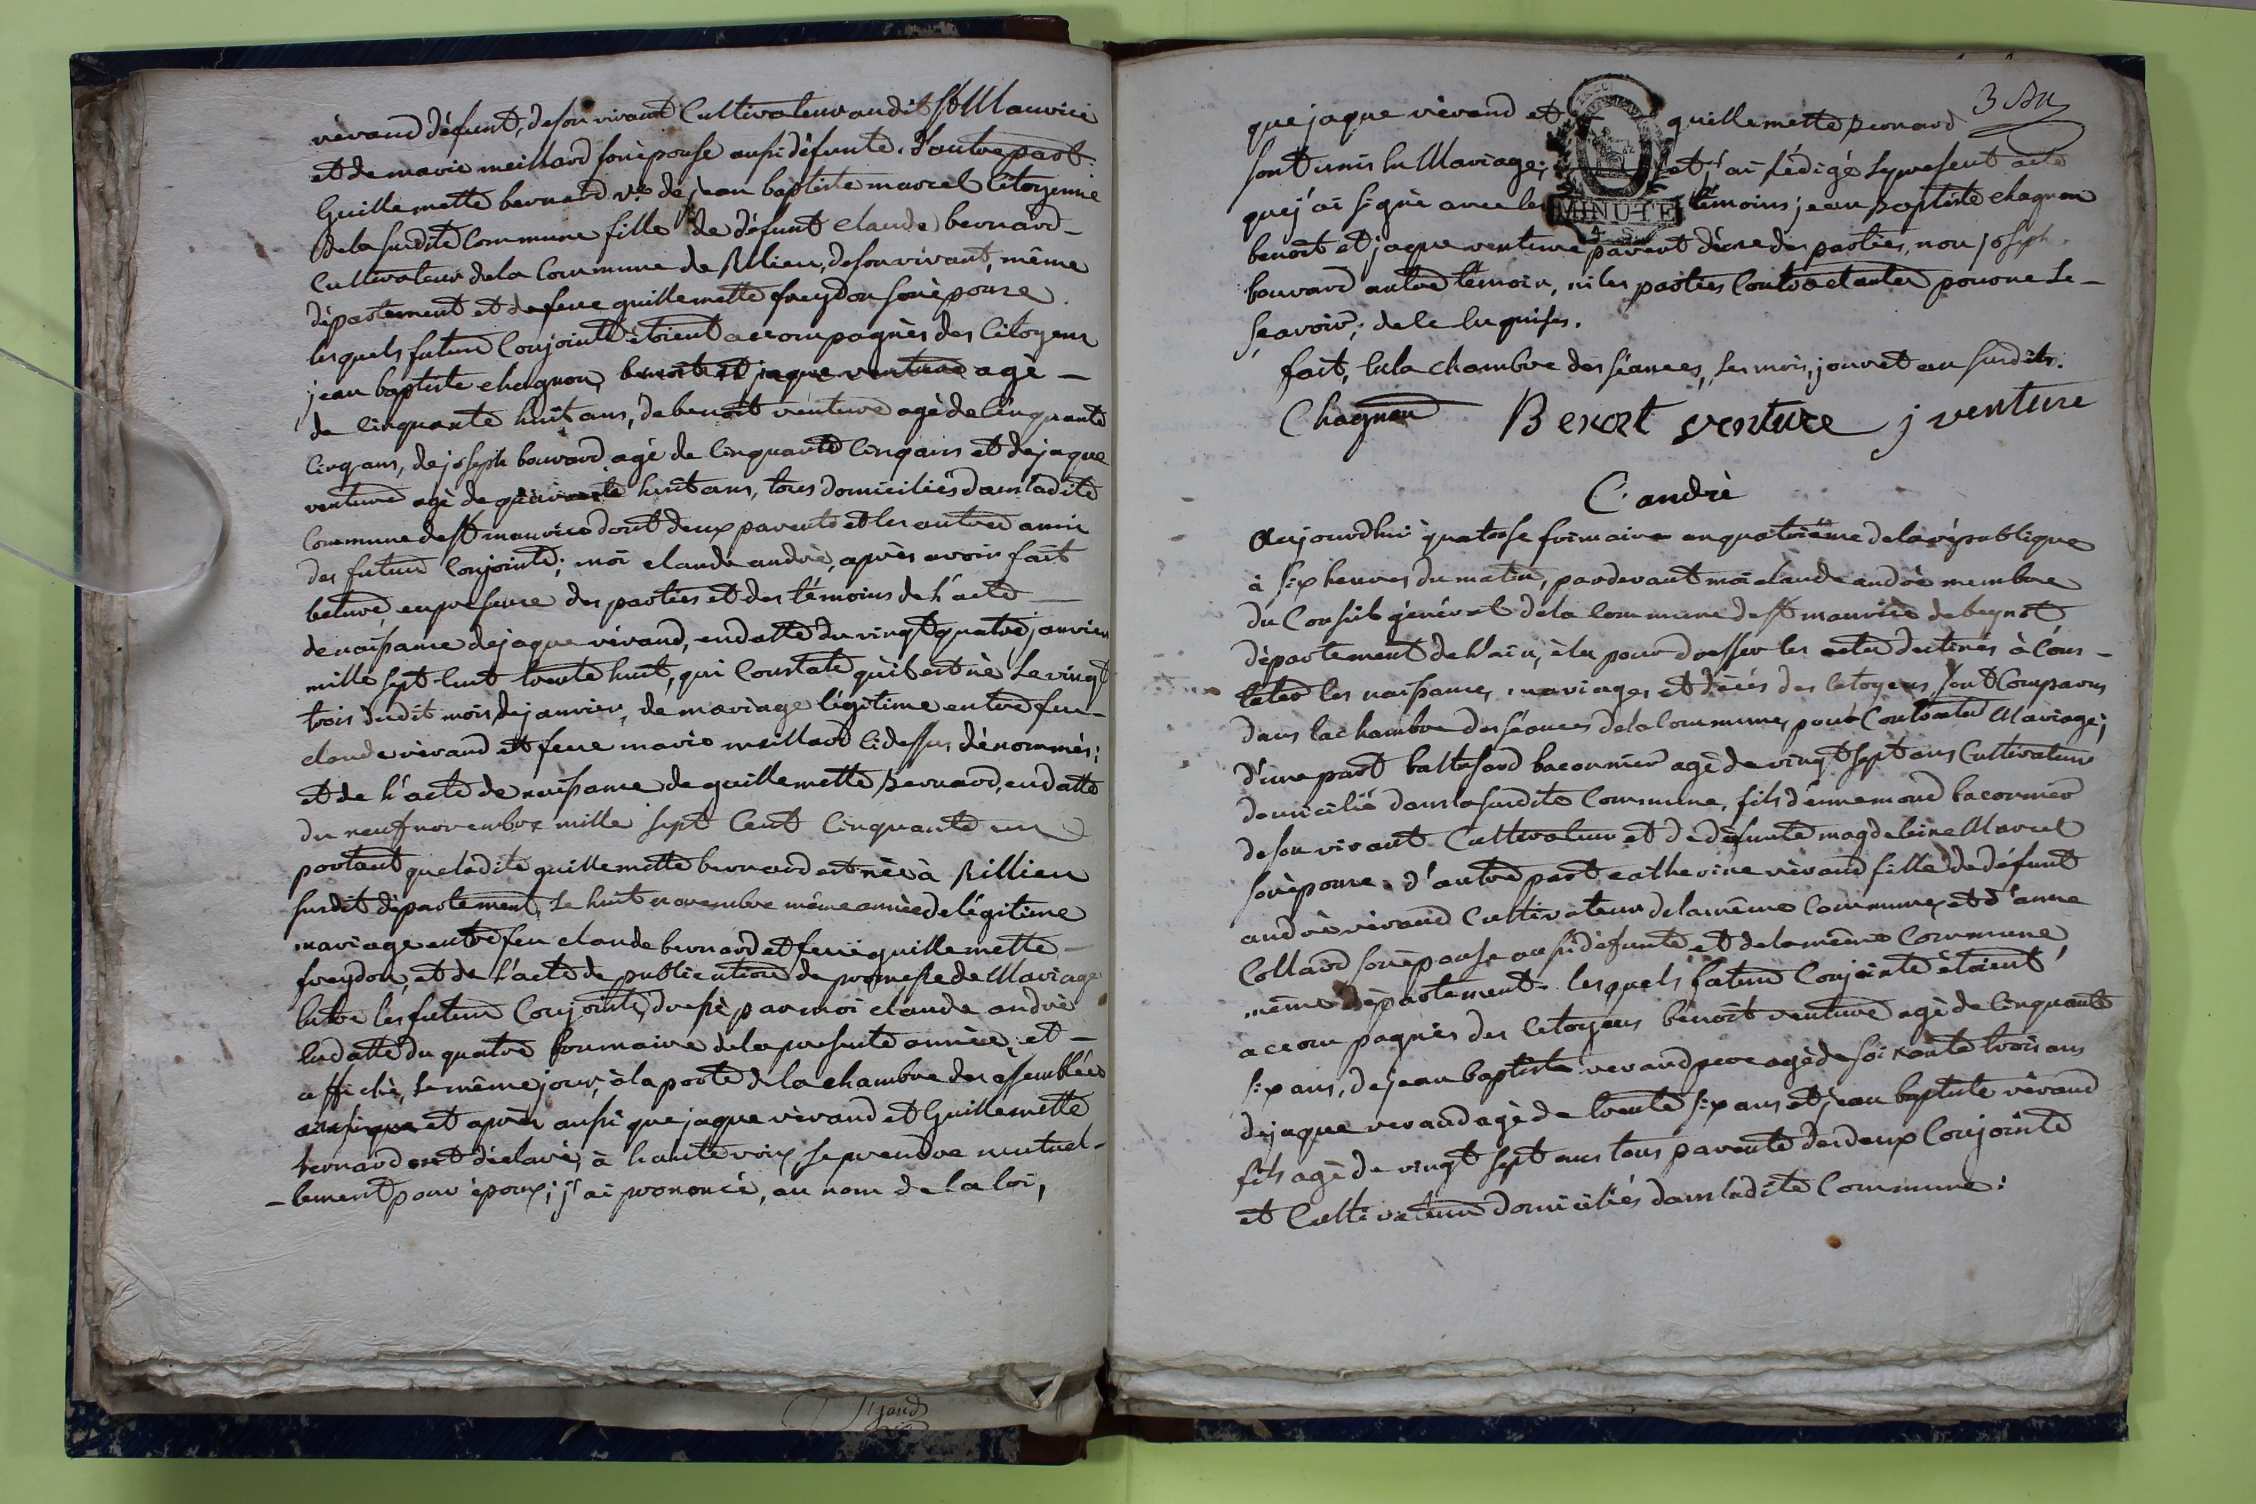 vèrand défunt, de son vivant Cultivateur audit St Maurice
et de marie meillard son èpouse ausi défunte. d'autre part.
Guillemette bernard ve. de jean baptiste marcel Citoyenne
de la susdite Commune fille de défunt claude bernard –
Cultivateur de la Commune de Rilieu, de son vivant, même
département et de feue guillemette freydon son èpouse
lesquels futurs Conjoints ètoient accompagnès des Citoyens
jean baptiste chagnon, benoit et jaque venture agè –
de Cinquante huit ans, de benoit venture agè de Cinquante
Cinq ans, de joseph bouvard agè de Cinquante Cinq ans et de jaque
venture agè de quarante huit ans, tous domiciliès dans ladite
Commune de St maurice dont deux parents et les autres amis
des futurs Conjoints; moi claude andrè, après avoir fait
lecture, en presence des parties et des tèmoins de l'acte –
de naissance de jaque vèrand, en datte du vingt quatre janvier
mille sept-Cent trente huit, qui Constate qu'il est nè le vingt
trois dudit mois de janvier, de mariage lègitime entre feu –
claude vèrand et feue marie meillard Cidessus dènommès;
et de l'acte de naissance de guillemette Bernard, en datte
du neuf novembre mille sept Cent Cinquante un
portant que ladite guillemette bernard est nèe à Rillieu
susdit dèpartement, le huit novembre même annèe de lègitime
mariage entre feu claude bernard et feue guillemette –
freydon, et de l'acte de publication de promesse de Mariage
Entre les futurs Conjoints, dressè par moi claude andrè
En datte du quatre frimaire de la presente annèe, et –
affichè, le même jour, à la porte de la chambre des assemblèes
et après aussi que jaque vèrand et Guillemette
bernard ont dèclarè, à haute voix, se prendre mutuel-
-lement pour èpoux; j'ai prononcè, au nom de la loi,
3 An
que jaque vèrand et guillemette Bernard
sont unis En Mariage; et j'ai Rédigé le present acte
que j'ai signè avec les tèmoins jean Baptiste chagnon
MINUTE
benoit et jaque venture parent d'une des parties, non joseph
bouvard autre tèmoin, ni les parties Contractantes pour ne le –
sçavoir, de le Enquises.
fait, En la chambre des sèances, les mois, jour et an susdits.
Chagnon Benoit venture j venture
C. andrè
Aujourdhui quatorse frimaire an quatrième de la rèpublique
à six heures du matin, pardevant moi claude andrè membre
du Conseil gènéral de la Commune de St maurice de beynost
dèpartement de l'ain, èlu pour dresser les actes destinès à Cons-
tater les naissances, mariages et dècès des Citoyens, sont Comparus
dans la chambre des sèances de la Commune, pour Contracter Mariage;
d'une part baltesard baconnier agè de vingt sept ans Cultivateur
domiciliè dans la susdite Commune, fils d'ennemond baconnier
de son vivant Cultivateur et de dèfunte magdeleine Marcel
son èpouse. d'autre part catherine vèrand fille de dèfunt
andrè vèrand Cultivateur de la même Commune, et d'anne
Collard son èpouse aussi dèfunte et de la même Commune
même dèpartement. lesquels futurs Conjoints ètoient
accompagnès des Citoyens benoit venture agè de Cinquante
six ans, de jean baptiste verand pere agè de soixante trois ans
de jaque verand agè de trente six ans et jean baptiste vèrand
fils agè de vingt sept ans tous parents des deux Conjoints
et Cultivateurs domiciliès dans ladite Commune: